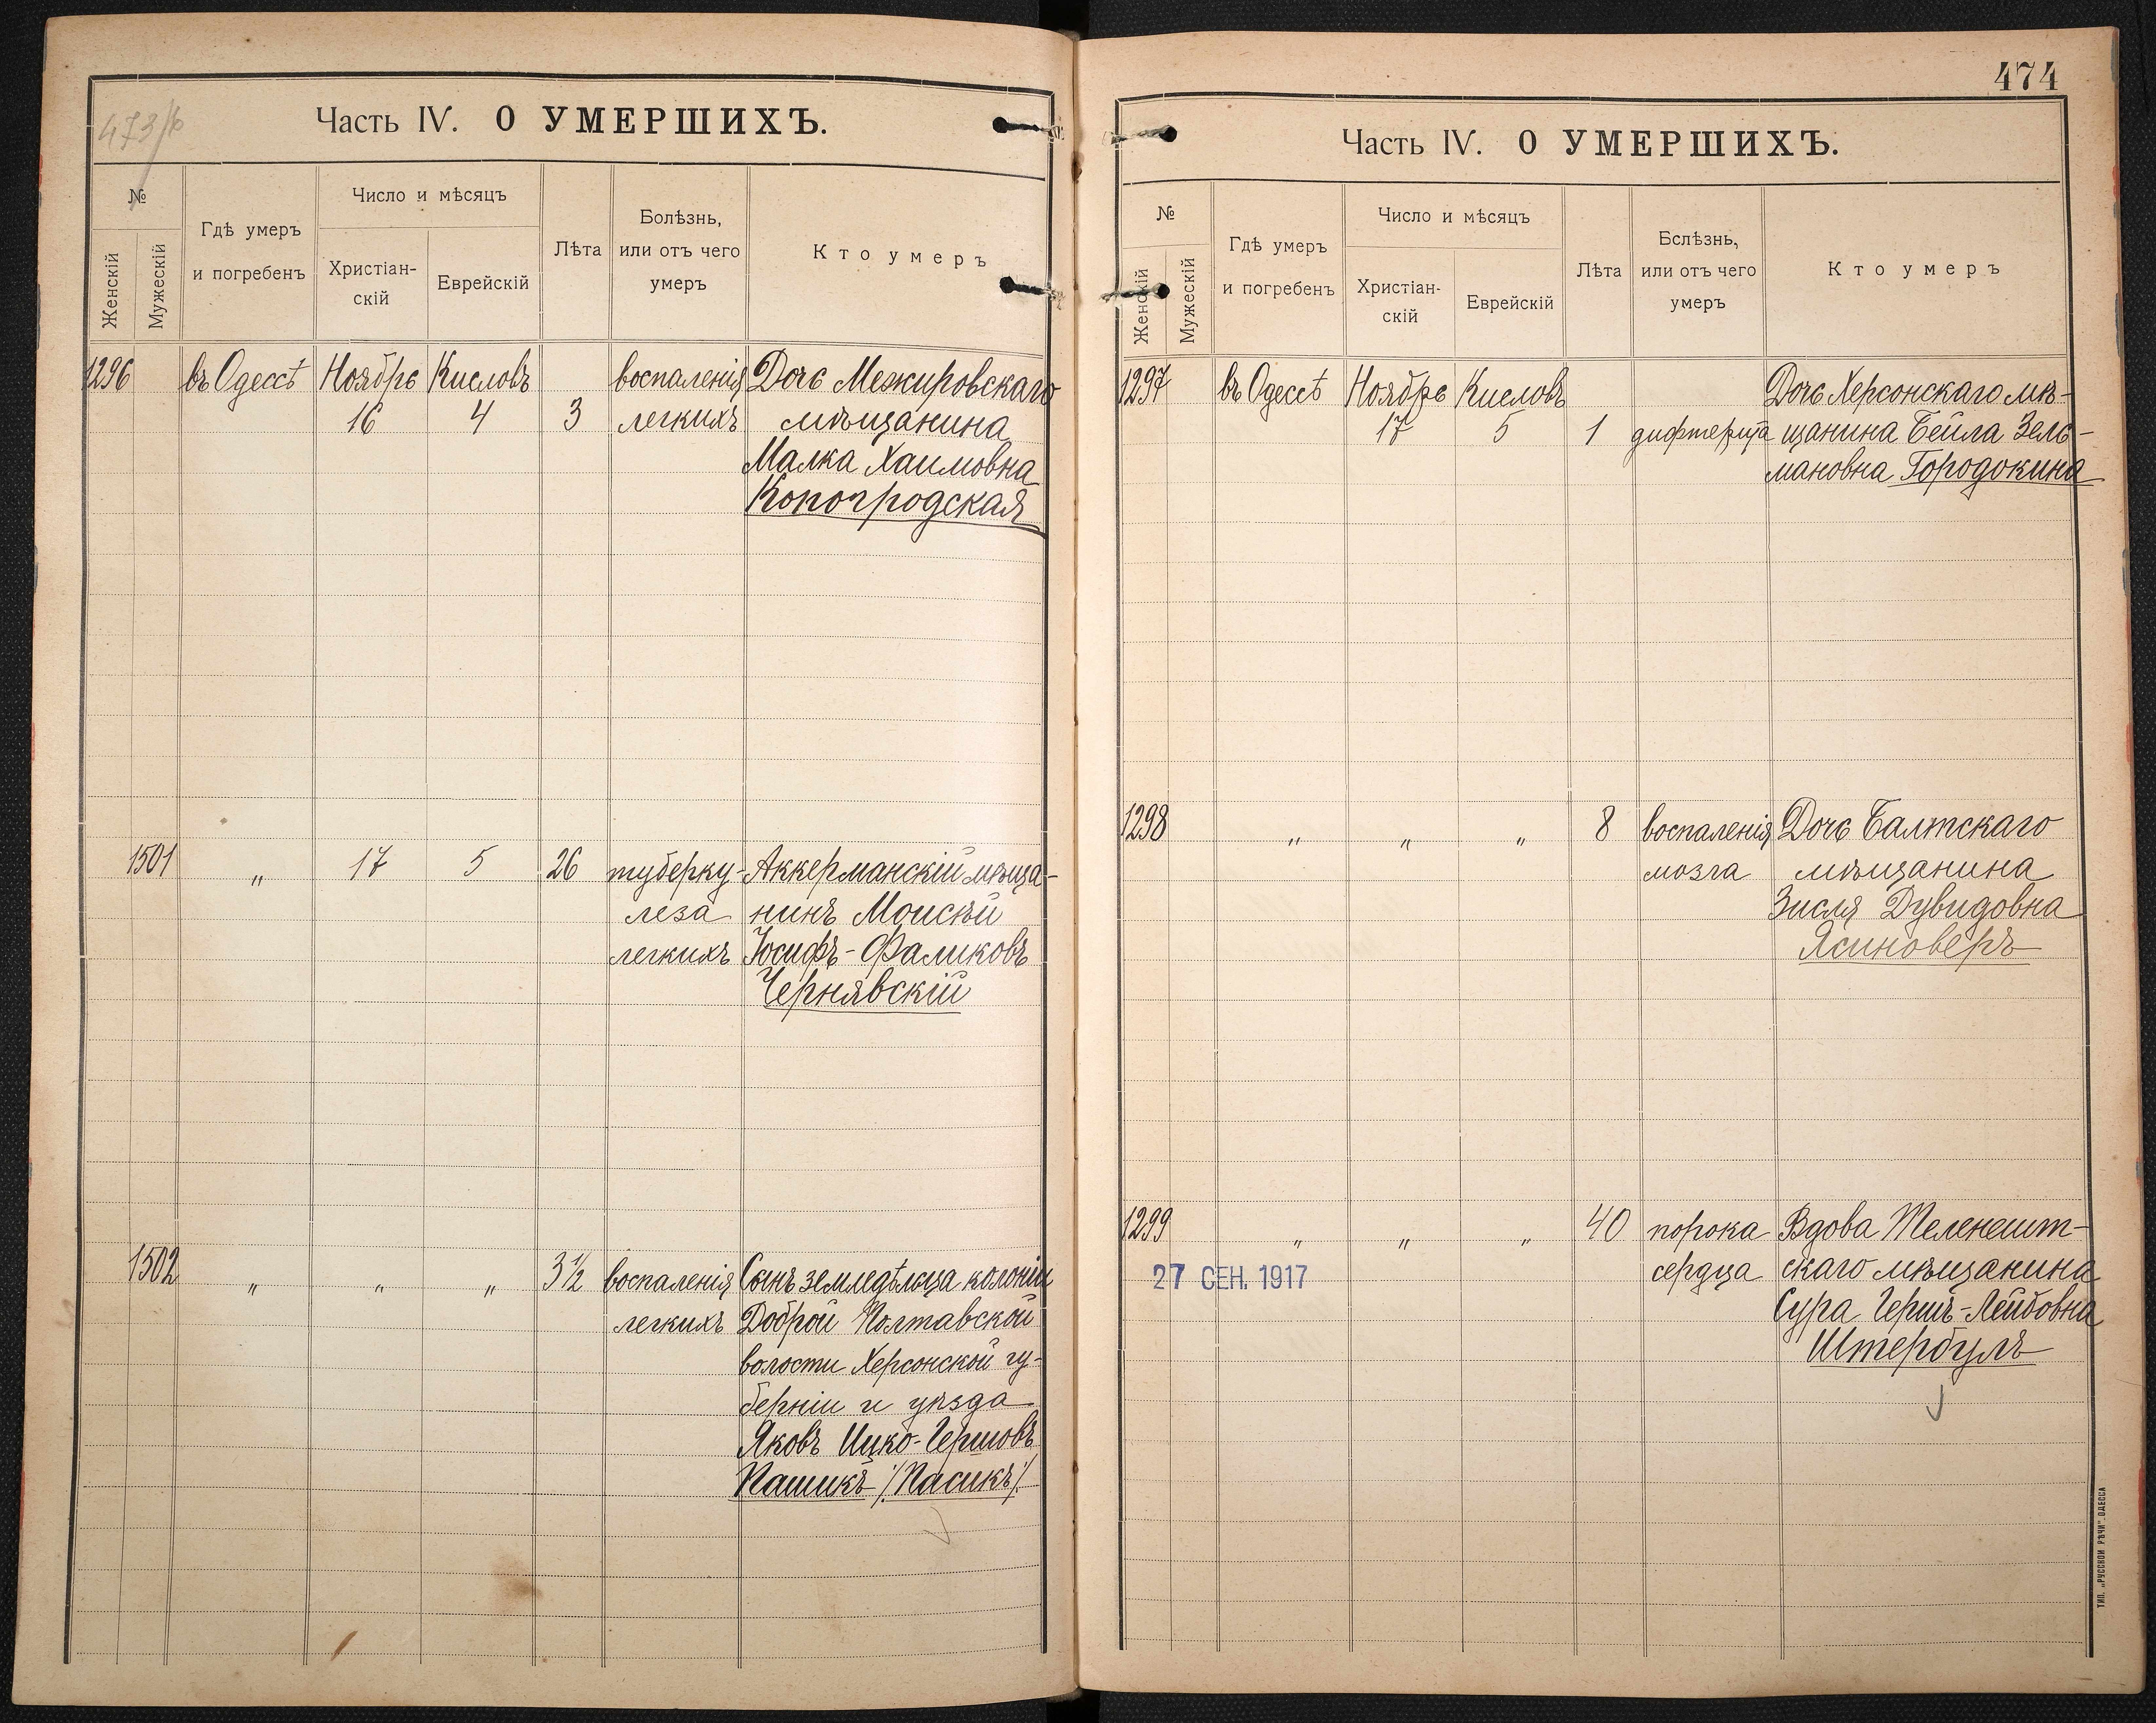 473/б
Часть IV. О УМЕРШИХЪ.
№
Женскій
Мужескій
Гдѣ умеръ
и погребенъ
Число и мѣсяцъ
Христіан-
скій
Еврейскій
Лѣта
Болѣзнь,
или отъ чего
умеръ
Кто умеръ
1296 въ Одессѣ Ноябрь Кисловъ воспаленія Дочь Межировскаго
16 4 3 легкихъ мѣщанина
Малка Хаимовна
Копогродская
1501 " 17 5 26 туберку- Аккерманскій мѣща-
леза нинъ Моисѣй
легкихъ Іосифъ-Фаликовъ
Чернявскій
1502 " " " 3½ воспаленія Сынъ земледѣльца колоніи
легкихъ Доброй Полтавской
волости Херсонской гу-
берніи и уѣзда
Яковъ Ицко-Гершовъ
Пашикъ /:Пасикъ:/
474
Часть IV. О УМЕРШИХЪ.
№
Женскій
Мужескій
Гдѣ умеръ
и погребенъ
Число и мѣсяцъ
Христіан-
скій
Еврейскій
Лѣта
Бслѣзнь,
или отъ чего
умеръ
Кто умеръ
1297 въ Одессѣ Ноябрь Кисловъ Дочь Херсонскаго мѣ-
17 5 1 дифтерита щанина Бейла Зель-
мановна Городокина
1298 " " " 8 воспаленія Дочь Балтскаго
мозга мѣщанина
Зисля Дувидовна
Ясиноверъ
1299 " " " 40 порока Вдова Теленешт-
27 СЕН. 1917 сердца скаго мѣщанина
Сура Гершъ-Лейбовна
Штербулъ
ТИП. „РУССКОЙ РѢЧИ". ОДЕССА